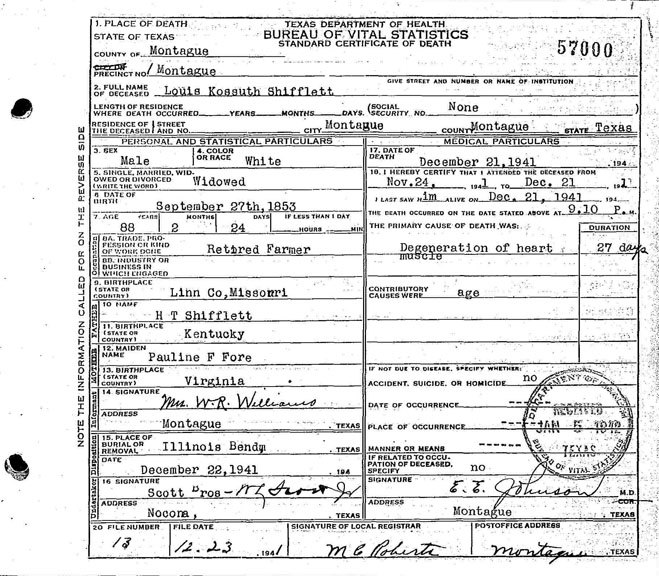 1. PLACE OF DEATH
STATE OF TEXAS
COUNTY OF Montague
PRECINCT NO. 1 Montague
TEXAS DEPARTMENT OF HEALTH
BUREAU OF VITAL STATISTICS
STANDARD CERTIFICATE OF DEATH
57000
GIVE STREET AND NUMBER OR NAME OF INSTITUTION
2. FULL NAME OF DECEASED Louis Kossuth Shifflett
LENGTH OF RESIDENCE WHERE DEATH OCCURRED YEARS MONTHS DAYS. (SOCIAL SECURITY NO. None )
RESIDENCE OF THE DECEASED STREET AND NO. CITY Montague COUNTY Montague STATE Texas
PERSONAL AND STATISTICAL PARTICULARS
3. SEX Male
4. COLOR OR RACE White
5. SINGLE, MARRIED, WIDOWED OR DIVORCED (WRITE THE WORD) Widowed
6 DATE OF BIRTH September 27th, 1853
7. AGE YEARS MONTHS DAYS IF LESS THAN 1 DAY
88 2 24 HOURS MIN
8A. TRADE, PROFESSION OR KIND OF WORK DONE Retired Farmer
8B. INDUSTRY OR BUSINESS IN WHICH ENGAGED
9. BIRTHPLACE (STATE OR COUNTRY) Linn Co, Missouri
10 NAME H T Shifflett
11. BIRTHPLACE (STATE OR COUNTRY) Kentucky
12. MAIDEN NAME Pauline F Fore
13. BIRTHPLACE (STATE OR COUNTRY) Virginia
14. SIGNATURE Mrs. W.R. Williams
ADDRESS Montague, TEXAS
15. PLACE OF BURIAL OR REMOVAL Illinois Bend, TEXAS
DATE December 22, 1941 194
16 SIGNATURE Scott Bros -
ADDRESS Nocona, TEXAS
MEDICAL PARTICULARS
17. DATE OF DEATH December 21, 1941 194
18. I HEREBY CERTIFY THAT I ATTENDED THE DECEASED FROM
Nov. 24, 1941 TO Dec. 21 1941
I LAST SAW Him ALIVE ON Dec. 21, 1941 194
THE DEATH OCCURRED ON THE DATE STATED ABOVE AT 9.10 P. M.
THE PRIMARY CAUSE OF DEATH WAS:
DURATION
Degeneration of heart muscle 27 days
CONTRIBUTORY CAUSES WERE age
IF NOT DUE TO DISEASE, SPECIFY WHETHER:
ACCIDENT, SUICIDE, OR HOMICIDE no
DATE OF OCCURRENCE
PLACE OF OCCURRENCE
MANNER OR MEANS
IF RELATED TO OCCUPATION OF DECEASED, SPECIFY no
SIGNATURE E. E. Johnson M.D.
ADDRESS Montague, TEXAS
RECEIVED
JAN 5 1942
TEXAS
BUREAU OF VITAL STATISTICS
20 FILE NUMBER 13
FILE DATE 12-23 1941
SIGNATURE OF LOCAL REGISTRAR M C Roberts
POSTOFFICE ADDRESS Montague, TEXAS
NOTE THE INFORMATION CALLED FOR ON THE REVERSE SIDE
Occupation
FATHER
MOTHER
Informant
Disposition
Undertaker